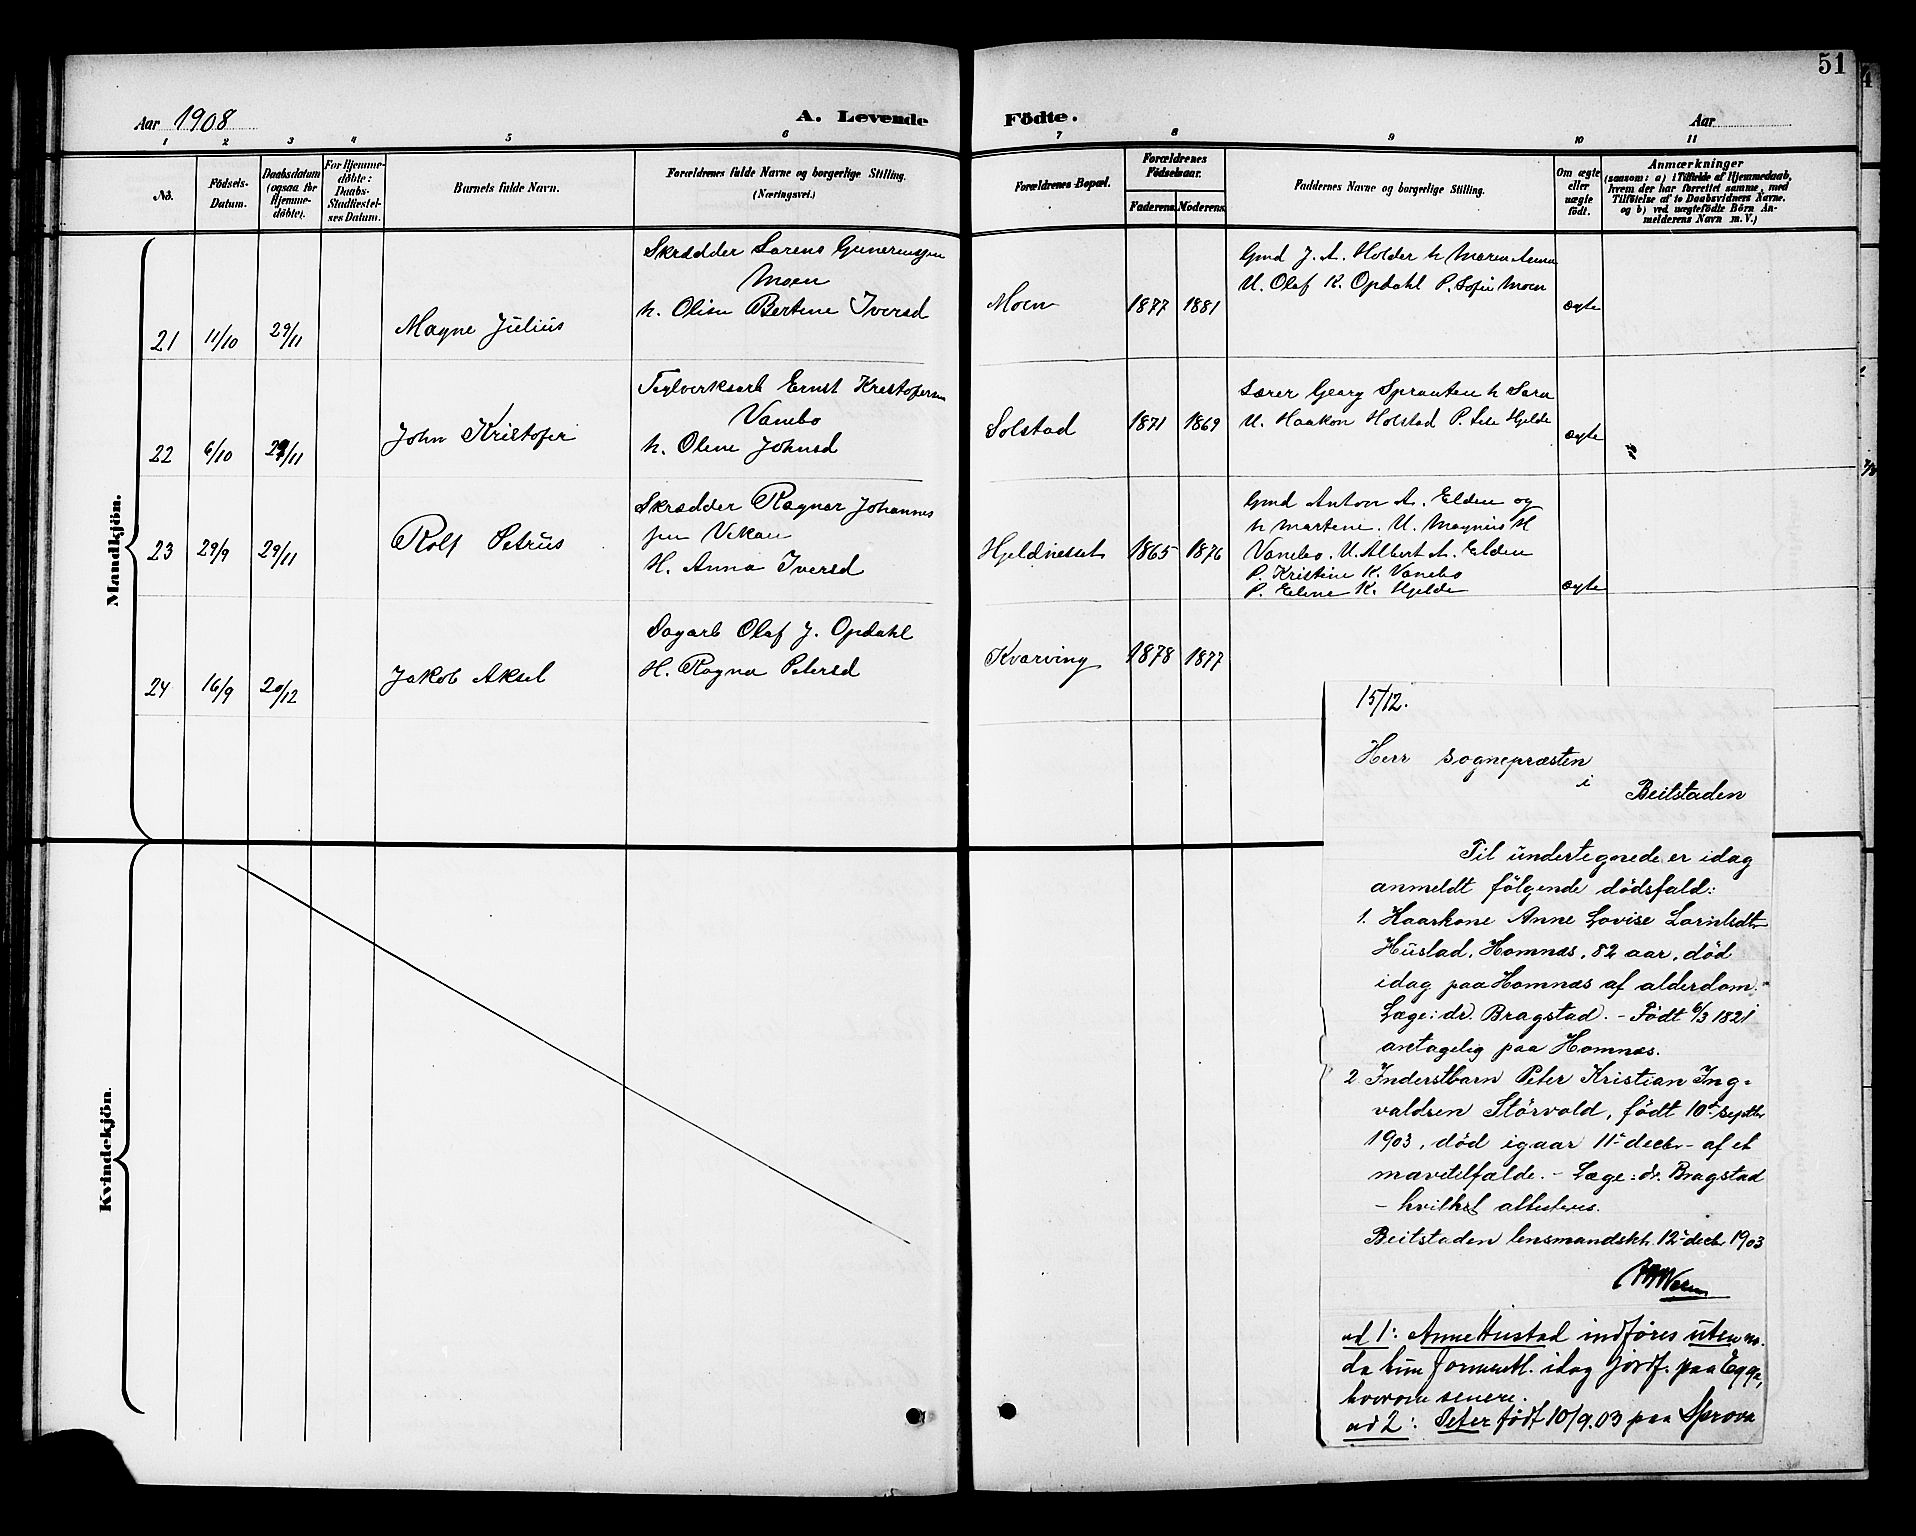 51
Aar 1908
A. Levende Födte.
Aar
1 2 3 4 5 6 7 8 9 10 11
No.
Födsels-Datum.
Daabsdatum (ogsaa for Hjemme-döbte).
For Hjemme-döbte: Daabs-Stadfæstel-ses Datum.
Barnets fulde Navn.
Forældrenes fulde Navne og borgerlige Stilling. (Næringsvei.)
Forældrenes Bopæl.
Forældrenes Födselsaar.
Faderens. Moderens.
Faddernes Navne og borgerlige Stilling.
Om ægte eller uægte födt.
Anmærkninger
(saasom: a) i Tilfælde af Hjemmedaab, hvem der har forrettet samme, med Tilföielse af to Daabsvidners Navne. og b) ved uægtefödte Börn An-melderens Navn m. V.)
Mandkjön.
21 11/10 29/11 Magne Julius
Skrædder Lorens Gunerius­sen
Moen
h. Oline Bertine Iversd
Moen 1877 1881
Gmd J. A. Holder h Maren Anna
U. Olaf K. Opdahl P. Sofie Moen
ægte
22 6/10 29/11 John Kristofer
Teglverksarb Ernst Kristofersen
Vanebo
h. Oline Johnsd
Solstad 1871 1869
Lærer Georg Sprauten h Sara
U. Haakon Holstad P. Hjelde
ægte
23 29/9 29/11 Rolf Petrus
Skrædder Ragnar Johannes
sen Vekan
H. Anna Iversd
Hjeldnesset 1865 1876
Gmd Anton A. Elden og
h Martene. U. Magnus H
Vanebo. U. Albert A. Elden
P. Kristine K. Vanebo
P. Eline K. Hjelde
ægte
24 16/9 20/12 Jakob Aksel
Sagarb Olaf J. Opdahl
H. Ragna Petersd
Kvarving 1878 1877
Kvindekjön.
15/12.
Herr sognepræsten
i
Beitstaden
Til undertegnede er idag
anmeldt følgende dödsfald:
1. Kaarkone Anne Lovise Lorntsdtr
Hustad, Homnæs, 82 aar, död
idag paa Homnæs af alderdom.
Læge: dr. Bragstad. - Födt 6/3 1821
antagelig paa Homnæs.
2. Inderstbarn Peter Kristian Ing-
valdsen Störvold, födt 10de septbr
1903, död igaar 11te decbr af et
mavetilfælde. - Læge: dr. Bragstad
- hvilket attesteres.
Beitstaden lensmandsktr 12te decbr 1903
ad 1: Anne Hustad indføres uten no.
da hun formentl. idag jordf. paa Egge,
hvorom senere.
ad 2: Peter født 10/9.03 paa Sprova